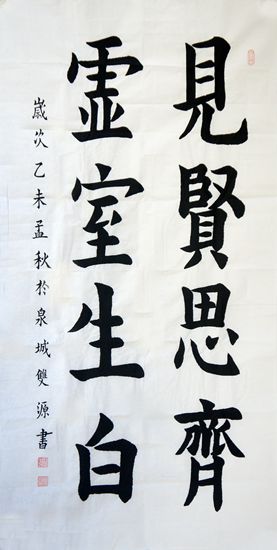 見賢思齊
虛室生白
歲次乙未孟秋於泉城雙源書